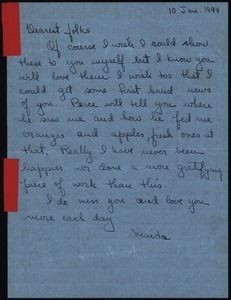 10 Jan. 1944
Dearest folks
Of course I wish I could show
these to you myself but I know you
will love them. I wish too that I
could get some first hand news
of you. Pence will tell you where
he saw me and how he fed me
oranges and apples, fresh ones at
that. Really I have never been
happier nor done a more gratifying
piece of work than this.
I do miss you and love you
more each day